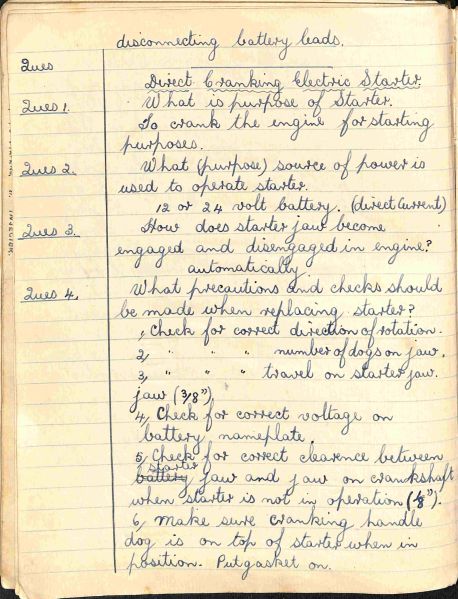 disconnecting battery leads.
Ques
Direct Cranking Electric Starter.
Ques 1. What is purpose of Starter.
To crank the engine for starting
purposes.
Ques 2. What (purpose) source of power is
used to operate starter.
12 or 24 volt battery. (direct Current)
Ques 3. How does starter jaw become
engaged and disengaged in engine?
automatically
Ques 4. What precautions and checks should
be made when replacing starter?
1, Check for correct direction of rotation.
2, " " " number of dogs on jaw.
3, " " " travel on starter jaw.
jaw (3/8")
4, Check for correct voltage on
battery nameplate.
5, Check for correct clearence between
starter
battery jaw and jaw on crankshaft
when starter is not in operation (1/8").
6, Make sure cranking handle
dog is on top of starter when in
position. Put gasket on.